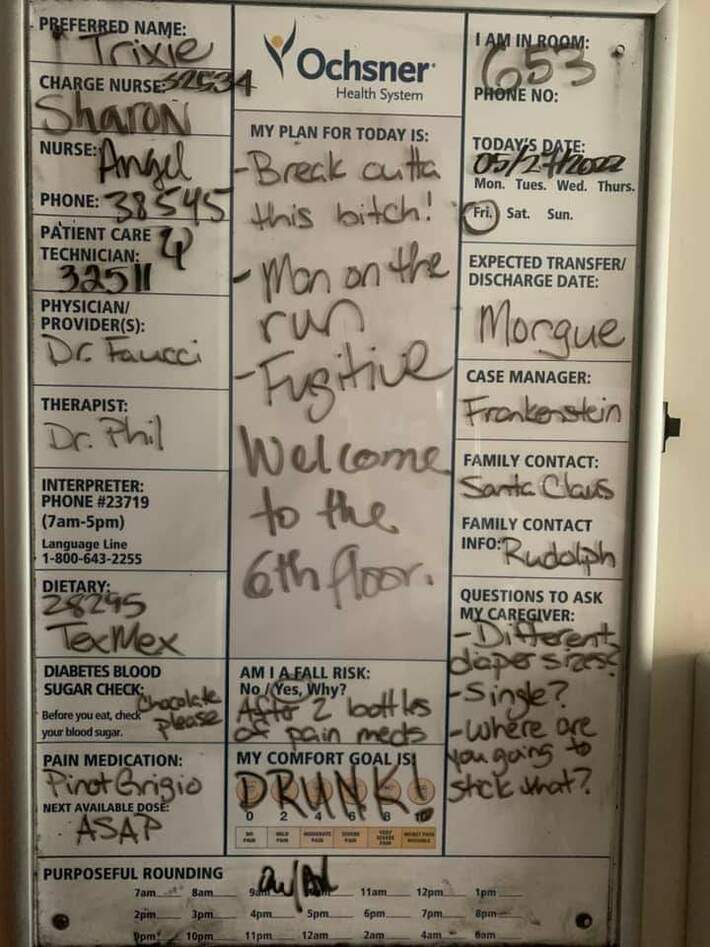 PREFERRED NAME:
Trixie
CHARGE NURSE: 32534
Sharon
NURSE: Angel
PHONE: 38545
PATIENT CARE
TECHNICIAN:
32511
PHYSICIAN/
PROVIDER(S):
Dr. Faucci
THERAPIST:
Dr. Phil
INTERPRETER:
PHONE #23719
(7am-5pm)
Language Line
1-800-643-2255
DIETARY:
28295
TexMex
DIABETES BLOOD
SUGAR CHECK: Chocolate
Before you eat, check please
your blood sugar.
PAIN MEDICATION:
Pinot Grigio
NEXT AVAILABLE DOSE:
ASAP
Ochsner
Health System
MY PLAN FOR TODAY IS:
- Break outta
this bitch!
- Man on the
run
- Fugitive
Welcome
to the
6th floor.
AM I A FALL RISK:
No / Yes, Why?
After 2 bottles
of pain meds
MY COMFORT GOAL IS:
DRUNK!
0 2 4 6 8 10
NO PAIN MILD PAIN MODERATE PAIN SEVERE PAIN VERY SEVERE PAIN WORST PAIN POSSIBLE
I AM IN ROOM:
653
PHONE NO:
TODAY'S DATE:
05/27/2022
Mon. Tues. Wed. Thurs.
Fri. Sat. Sun.
EXPECTED TRANSFER/
DISCHARGE DATE:
Morgue
CASE MANAGER:
Frankenstein
FAMILY CONTACT:
Santa Claus
FAMILY CONTACT
INFO: Rudolph
QUESTIONS TO ASK
MY CAREGIVER:
- Different
diaper sizes?
- Single?
- Where are
you going to
stick what?
PURPOSEFUL ROUNDING
7am 8am 9am 11am 12pm 1pm
2pm 3pm 4pm 5pm 6pm 7pm 8pm
9pm 10pm 11pm 12am 2am 4am 6am